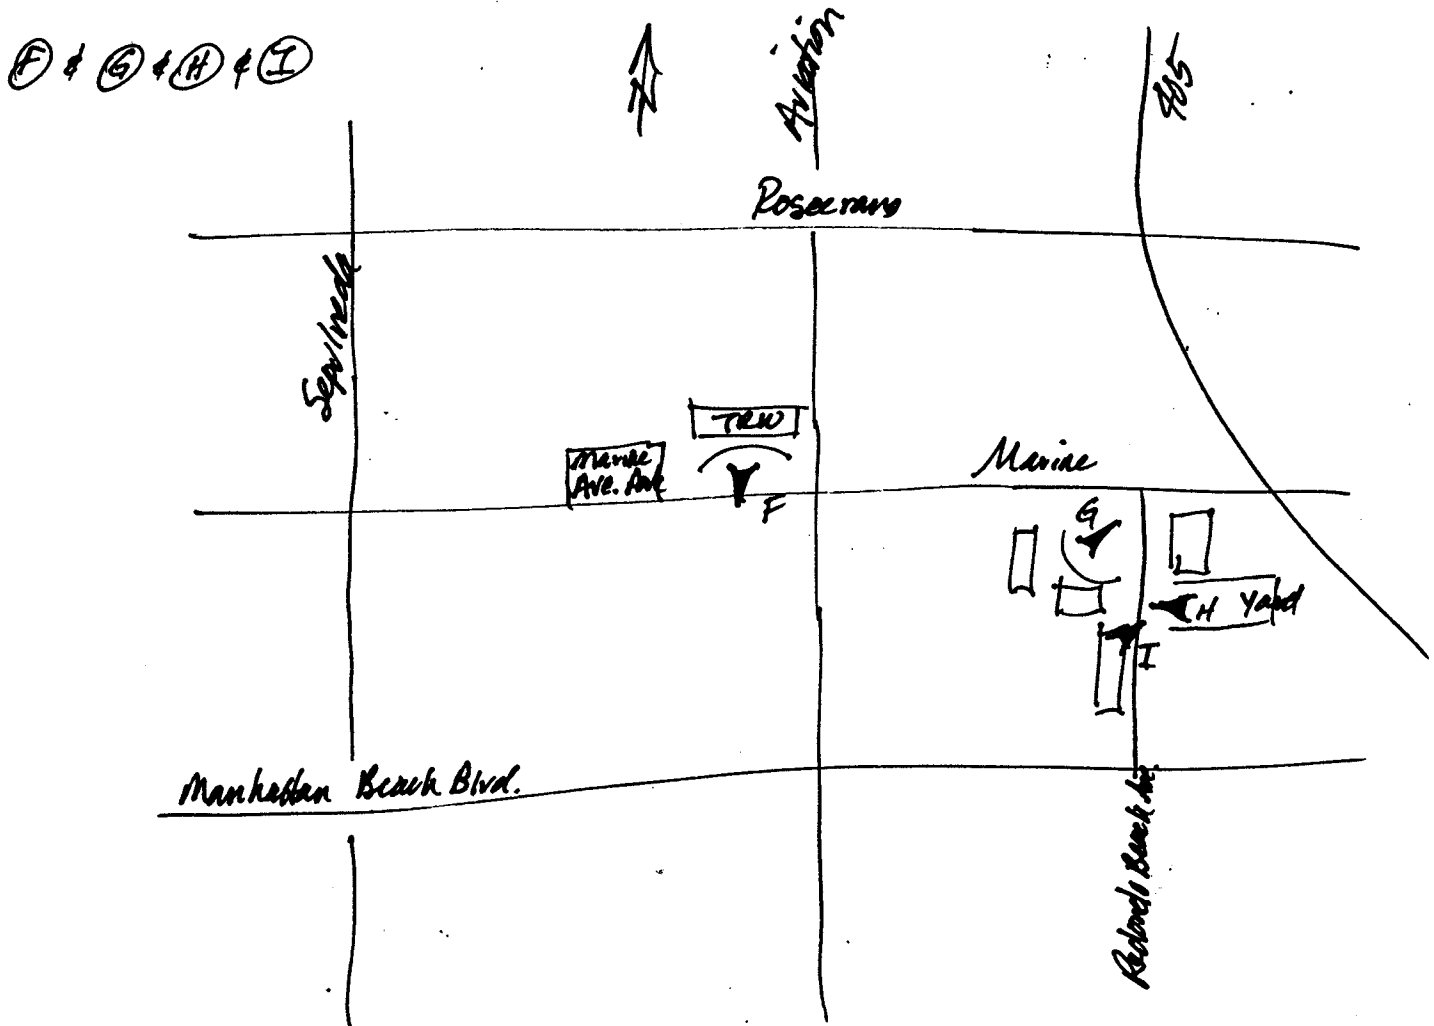 F & G & H & I
N
Aviation
405
Rosecrans
Sepulveda
TRW
Marine
Ave. Park
F
Marine
G
H Yard
I
Manhattan Beach Blvd.
Redondo Beach Av.